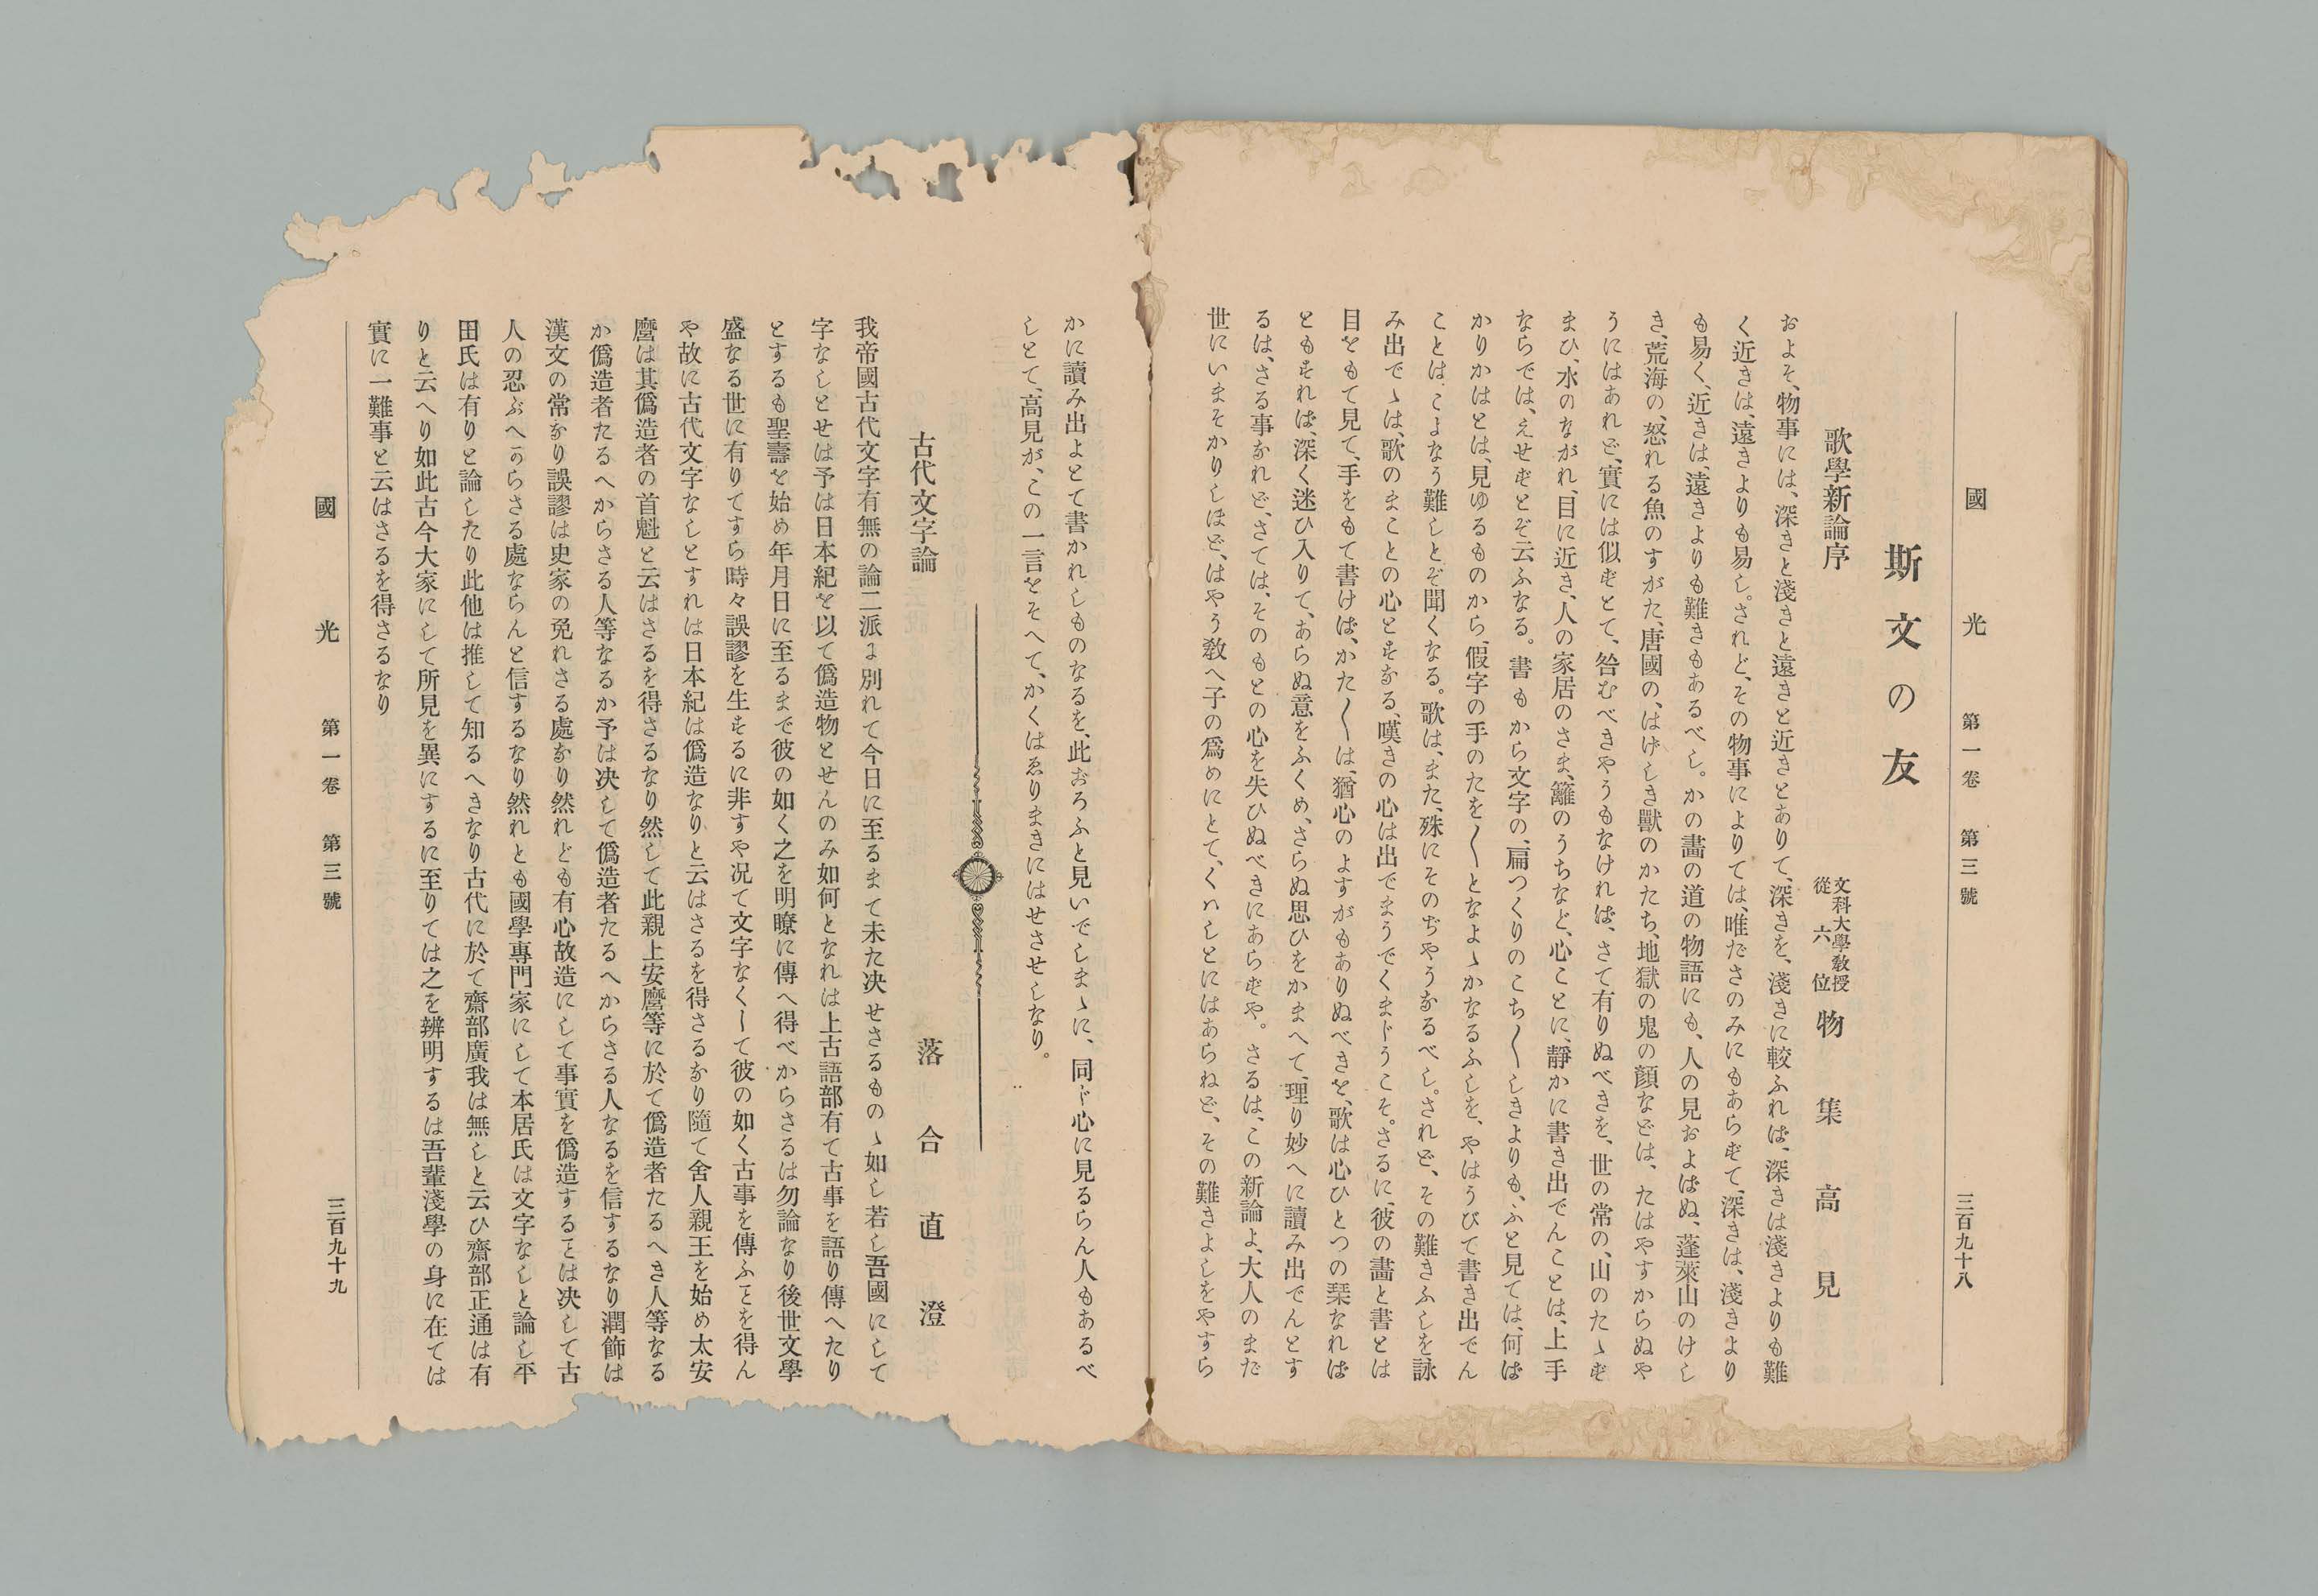 國光 第一卷 第三號 三百九十八
斯文の友
歌學新論序
文科大學敎授
從六位
物集高見
およそ、物事には、深きと淺きと遠きと近きとありて、深きを、淺きに較ふれば、深きは淺きよりも難
く近きは、遠きよりも易し。されど、その物事によりては、唯ださのみにもあらずて、深きは、淺きより
も易く、近きは、遠きよりも難きもあるべし。かの畵の道の物語にも、人の見およばぬ、蓬萊山のけし
き、荒海の、怒れる魚のすがた、唐國の、はげしき獸のかたち、地獄の鬼の顏などは、たはやすからぬや
うにはあれど、實には似ずとて、咎むべきやうもなければ、さて有りぬべきを、世の常の、山のたゝず
まひ、水のながれ、目に近き、人の家居のさま、籬のうちなど、心ことに、靜かに書き出でんことは、上手
ならでは、えせずとぞ云ふなる。書もから文字の、扁つくりのこち〳〵しきよりも、ふと見ては、何ば
かりかはとは、見ゆるものから、假字の手のたを〳〵となよゝかなるふしを、やはうびて書き出でん
ことは、こよなう難しとぞ聞くなる。歌は、また、殊にそのぢやうなるべし。されど、その難きふしを詠
み出でゝは、歌のまことの心とすなる、嘆きの心は出でまうでくまじうこそ。さるに、彼の畵と書とは
目をもて見て、手をもて書けば、かた〳〵は、猶心のよすがもありぬべきを、歌は心ひとつの栞なれば
ともすれば、深く迷ひ入りて、あらぬ意をふくめ、さらぬ思ひをかまへて、理り妙へに讀み出でんとす
るは、さる事なれど、さては、そのもとの心を失ひぬべきにあらずや。さるは、この新論よ、大人のまだ
世にいまそかりしほど、はやう敎へ子の爲めにとて、くハしとにはあらねど、その難きよしをやすら
かに讀み出よとて書かれしものなるを、此おろふと見いでしまゝに、同じ心に見るらん人もあるべ
しとて、高見が、この一言をそへて、かくはゑりまきにはせさせしなり。
古代文字論
落合直澄
我帝國古代文字有無の論二派ま別れて今日に至るまて未た决せさるものゝ如し若し吾國にして
字なしとせは予は日本紀を以て僞造物とせんのみ如何となれは上古語部有て古事を語り傳へたり
とするも聖壽を始め年月日に至るまで彼の如く之を明瞭に傳へ得べからさるは勿論なり後世文學
盛なる世に有りてすら時々誤謬を生するに非すや况て文字なくして彼の如く古事を傳ふヿを得ん
や故に古代文字なしとすれは日本紀は僞造なりと云はさるを得さるなり隨て舍人親王を始め太安
麿は其僞造者の首魁と云はさるを得さるなり然して此親上安麿等に於て僞造者たるへき人等なる
か僞造者たるへからさる人等なるか予は决して僞造者たるへからさる人なるを信するなり潤飾は
漢文の常なり誤謬は史家の免れさる處なり然れども有心故造にして事實を僞造するヿは决して古
人の忍ぶへからさる處ならんと信するなり然れとも國學專門家にして本居氏は文字なしと論し平
田氏は有りと論したり此他は推して知るへきなり古代に於て齋部廣我は無しと云ひ齋部正通は有
りと云へり如此古今大家にして所見を異にするに至りては之を辨明するは吾輩淺學の身に在ては
實に一難事と云はさるを得さるなり
國光 第一卷 第三號 三百九十九